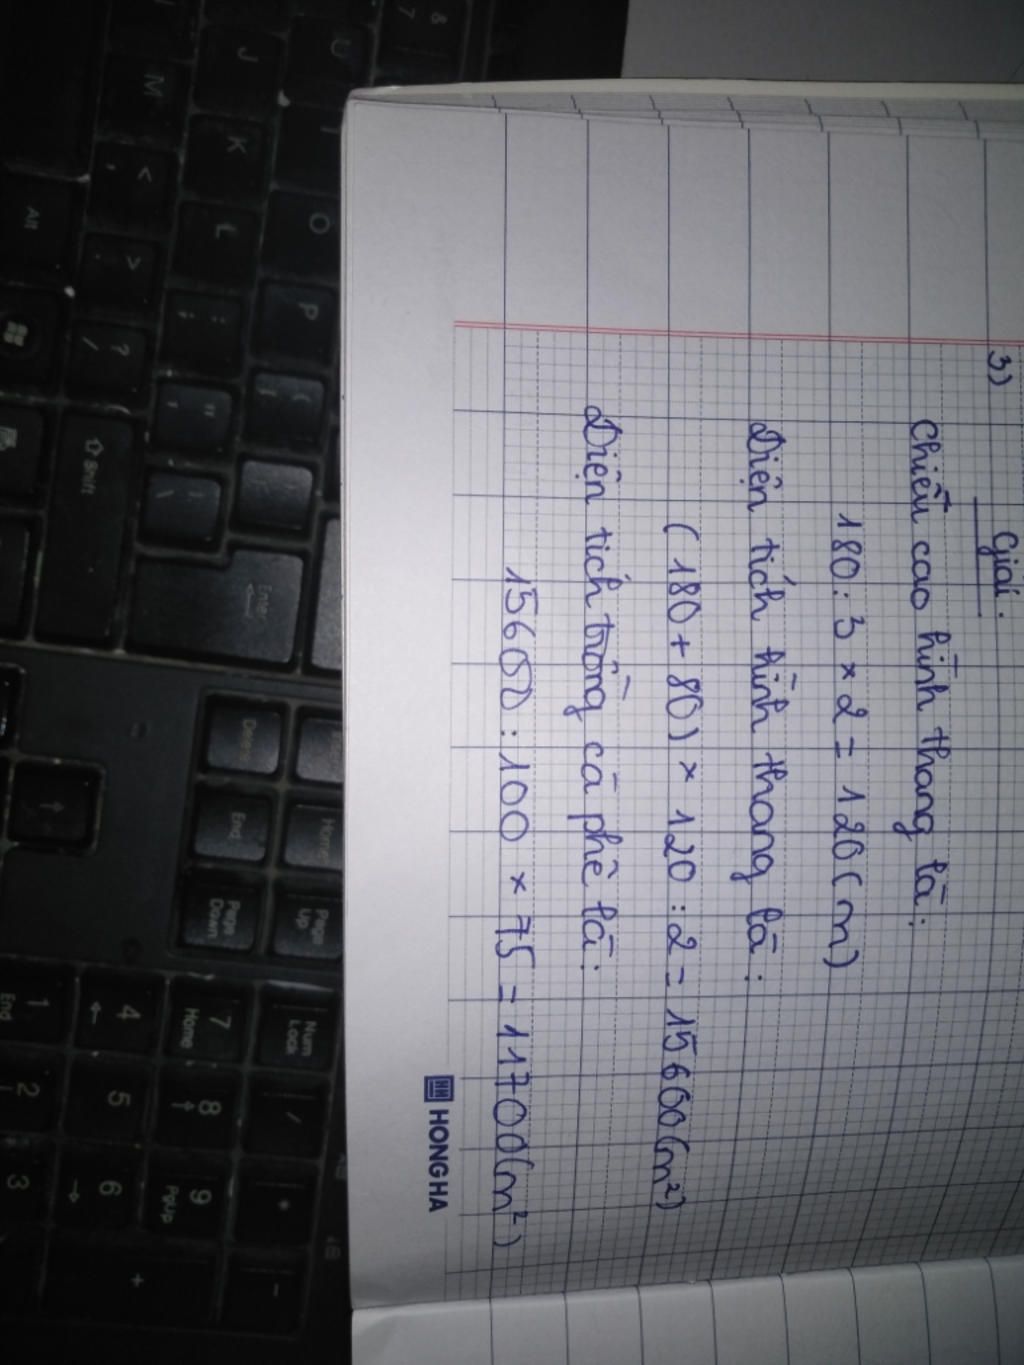 3)
Giải:
Chiều cao hình thang là:
180 : 3 × 2 = 120 (m)
Diện tích hình thang là:
(180 + 80) × 120 : 2 = 15600 (m²)
Diện tích trồng cà phê là:
15600 : 100 × 75 = 11700 (m²)
HONG HA
U
J
K
L
M
O
P
Alt
Shift
Enter
Delete
End
Page Down
Home
Page Up
Num Lock
7 Home
8
9 PgUp
4
5
6
1 End
2
3